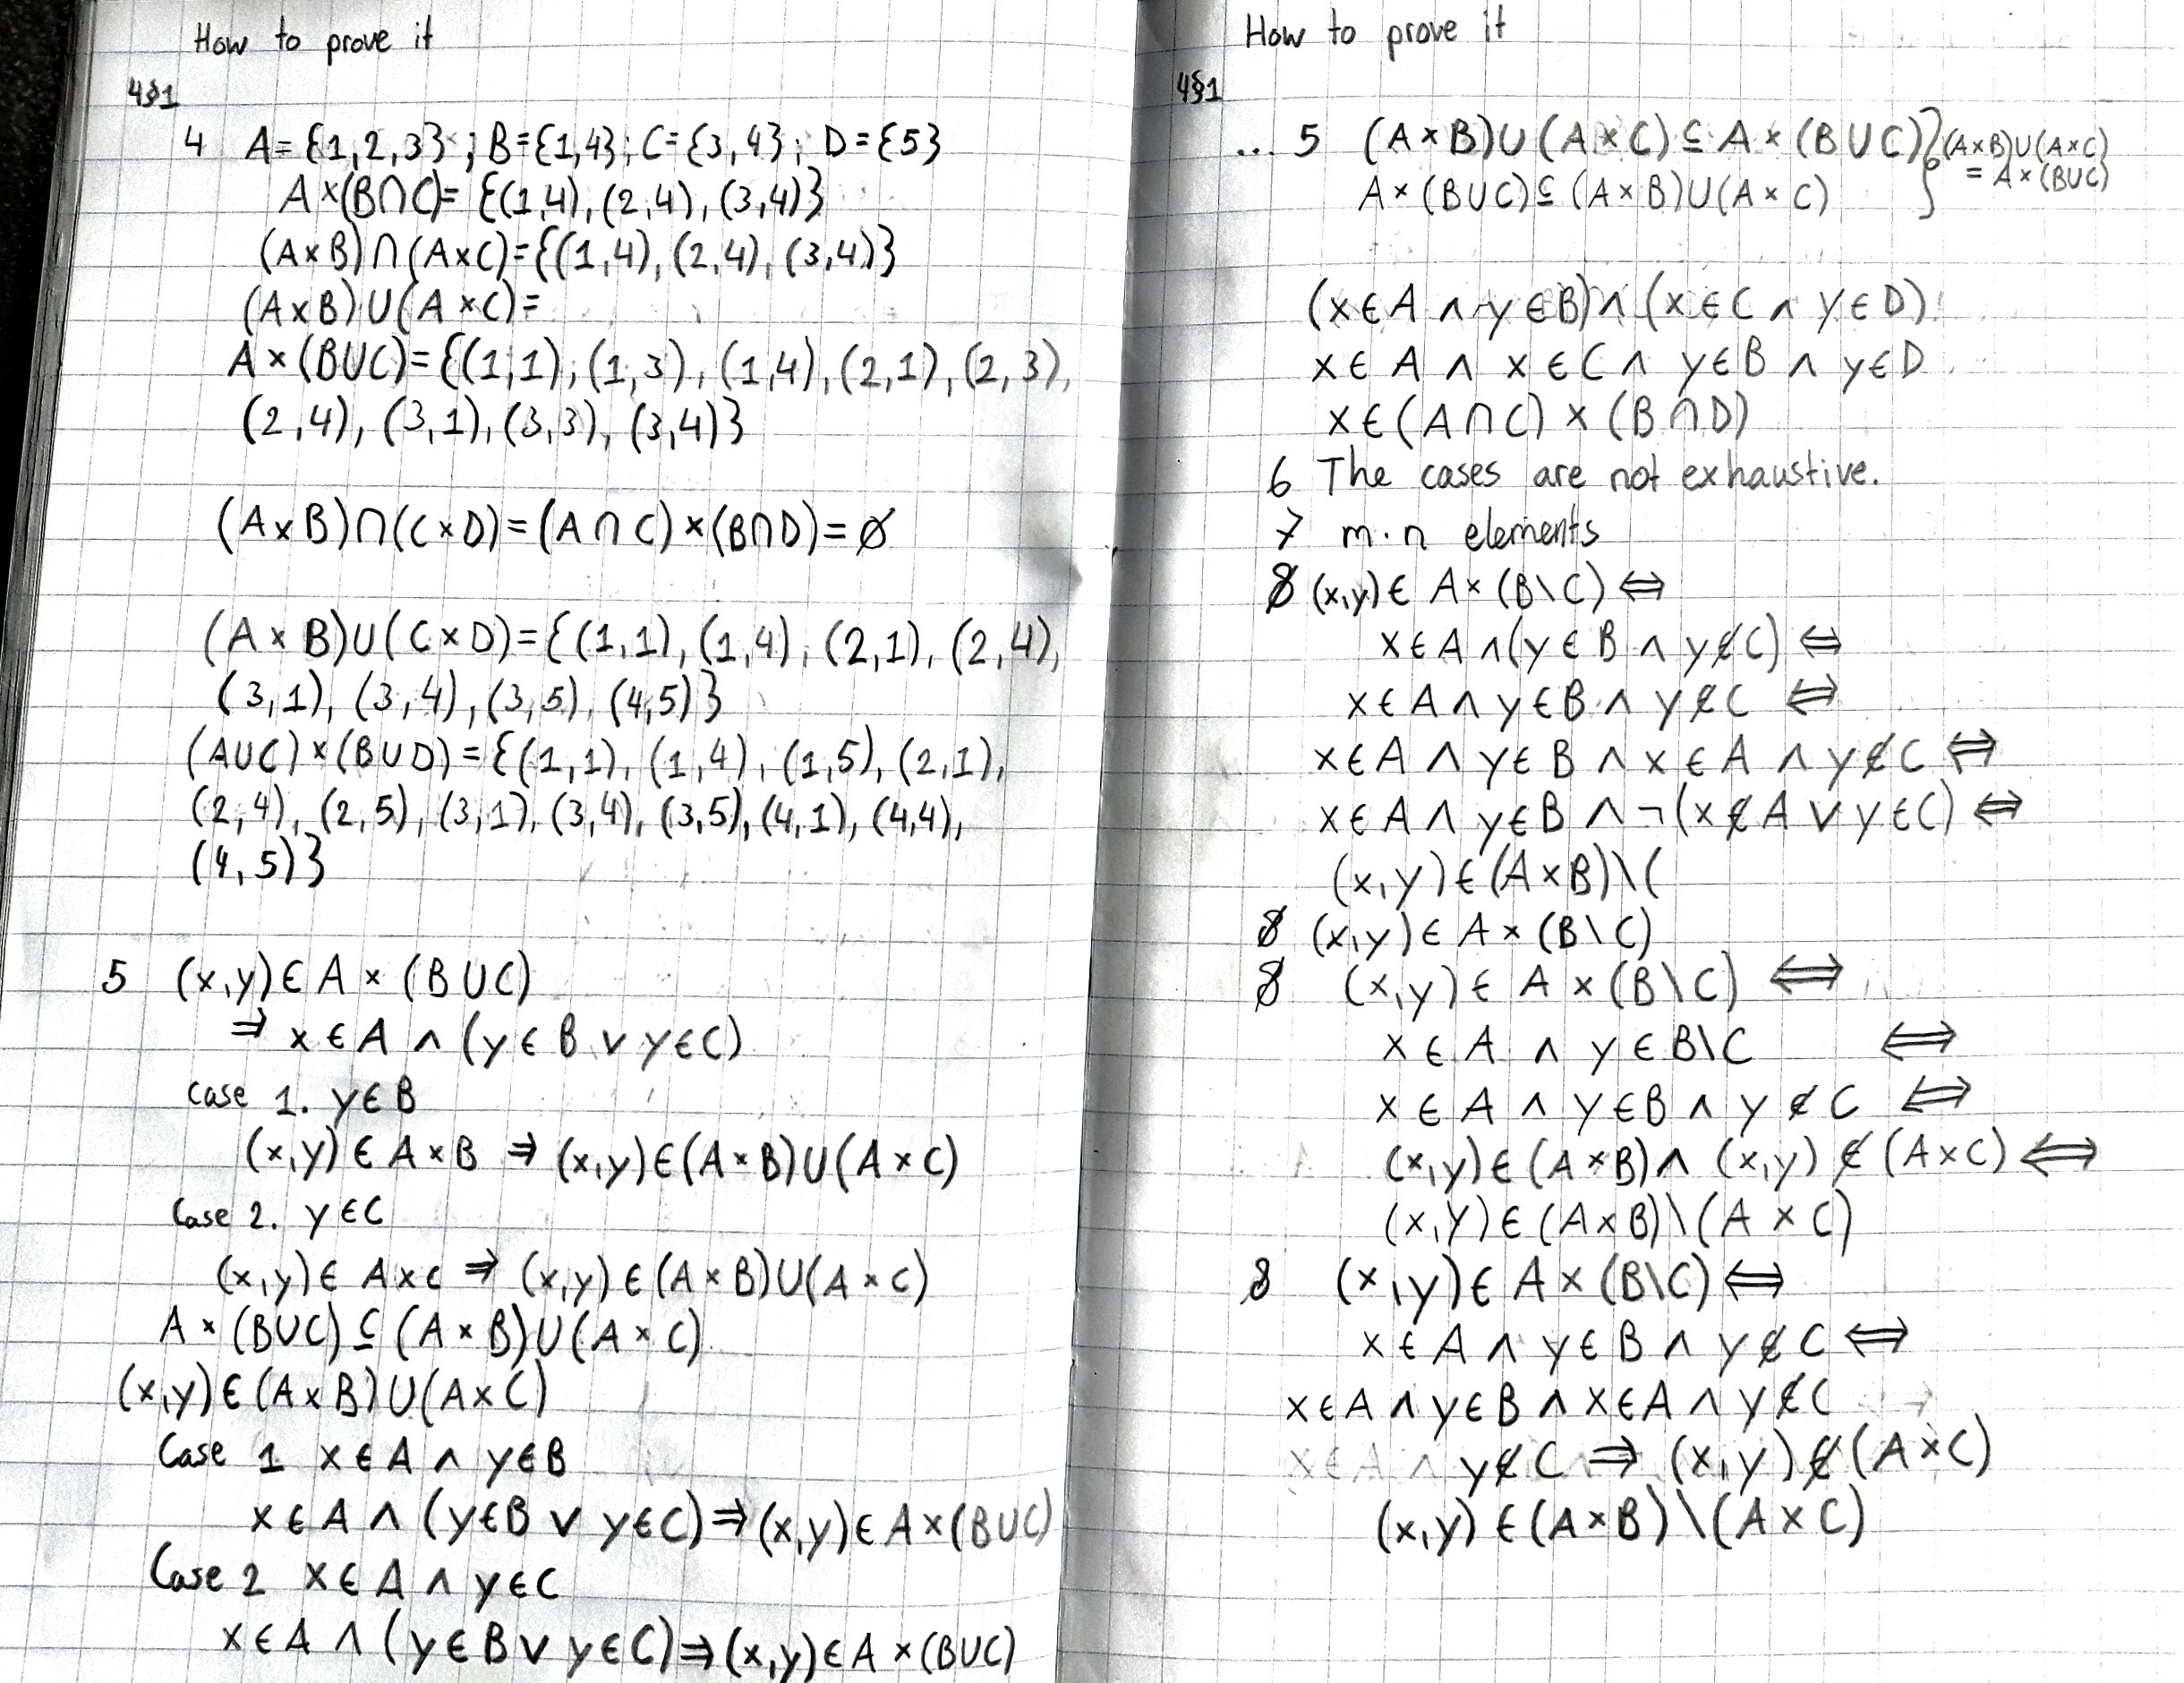 How to prove it
4§1
4 A={1,2,3}; B={1,4}; C={3,4}; D={5}
A×(B∩C)={(1,4),(2,4),(3,4)}
(A×B)∩(A×C)={(1,4),(2,4),(3,4)}
(A×B)∪(A×C)=
A×(B∪C)={(1,1),(1,3),(1,4),(2,1),(2,3),
(2,4),(3,1),(3,3),(3,4)}
(A×B)∩(C×D)=(A∩C)×(B∩D)=∅
(A×B)∪(C×D)={(1,1),(1,4),(2,1),(2,4),
(3,1),(3,4),(3,5),(4,5)}
(A∪C)×(B∪D)={(1,1),(1,4),(1,5),(2,1),
(2,4),(2,5),(3,1),(3,4),(3,5),(4,1),(4,4),
(4,5)}
5 (x,y)∈A×(B∪C)
⇒ x∈A ∧ (y∈B ∨ y∈C)
case 1. y∈B
(x,y)∈A×B ⇒ (x,y)∈(A×B)∪(A×C)
Case 2. y∈C
(x,y)∈A×C ⇒ (x,y)∈(A×B)∪(A×C)
A×(B∪C)⊆(A×B)∪(A×C)
(x,y)∈(A×B)∪(A×C)
Case 1 x∈A ∧ y∈B
x∈A ∧ (y∈B ∨ y∈C)⇒(x,y)∈A×(B∪C)
Case 2 x∈A ∧ y∈C
x∈A ∧ (y∈B ∨ y∈C)⇒(x,y)∈A×(B∪C)
How to prove it
4§1
... 5 (A×B)∪(A×C)⊆A×(B∪C) } (A×B)∪(A×C)
A×(B∪C)⊆(A×B)∪(A×C) = A×(B∪C)
(x∈A ∧ y∈B)∧(x∈C ∧ y∈D)
x∈A ∧ x∈C ∧ y∈B ∧ y∈D
x∈(A∩C)×(B∩D)
6 The cases are not exhaustive.
7 m·n elements
8 (x,y)∈A×(B\C)⇔
x∈A ∧(y∈B ∧ y∉C)⇔
x∈A ∧ y∈B ∧ y∉C ⇔
x∈A ∧ y∈B ∧ x∈A ∧ y∉C ⇔
x∈A ∧ y∈B ∧ ¬(x∉A ∨ y∈C)⇔
(x,y)∈(A×B)\(
8 (x,y)∈A×(B\C)
8 (x,y)∈A×(B\C) ⇔
x∈A ∧ y∈B\C ⇔
x∈A ∧ y∈B ∧ y∉C ⇔
(x,y)∈(A×B)∧ (x,y)∉(A×C)⇔
(x,y)∈(A×B)\(A×C)
8 (x,y)∈A×(B\C)⇔
x∈A ∧ y∈B ∧ y∉C⇔
x∈A ∧ y∈B ∧ x∈A ∧ y∉C
x∈A ∧ y∉C ⇒ (x,y)∉(A×C)
(x,y)∈(A×B)\(A×C)